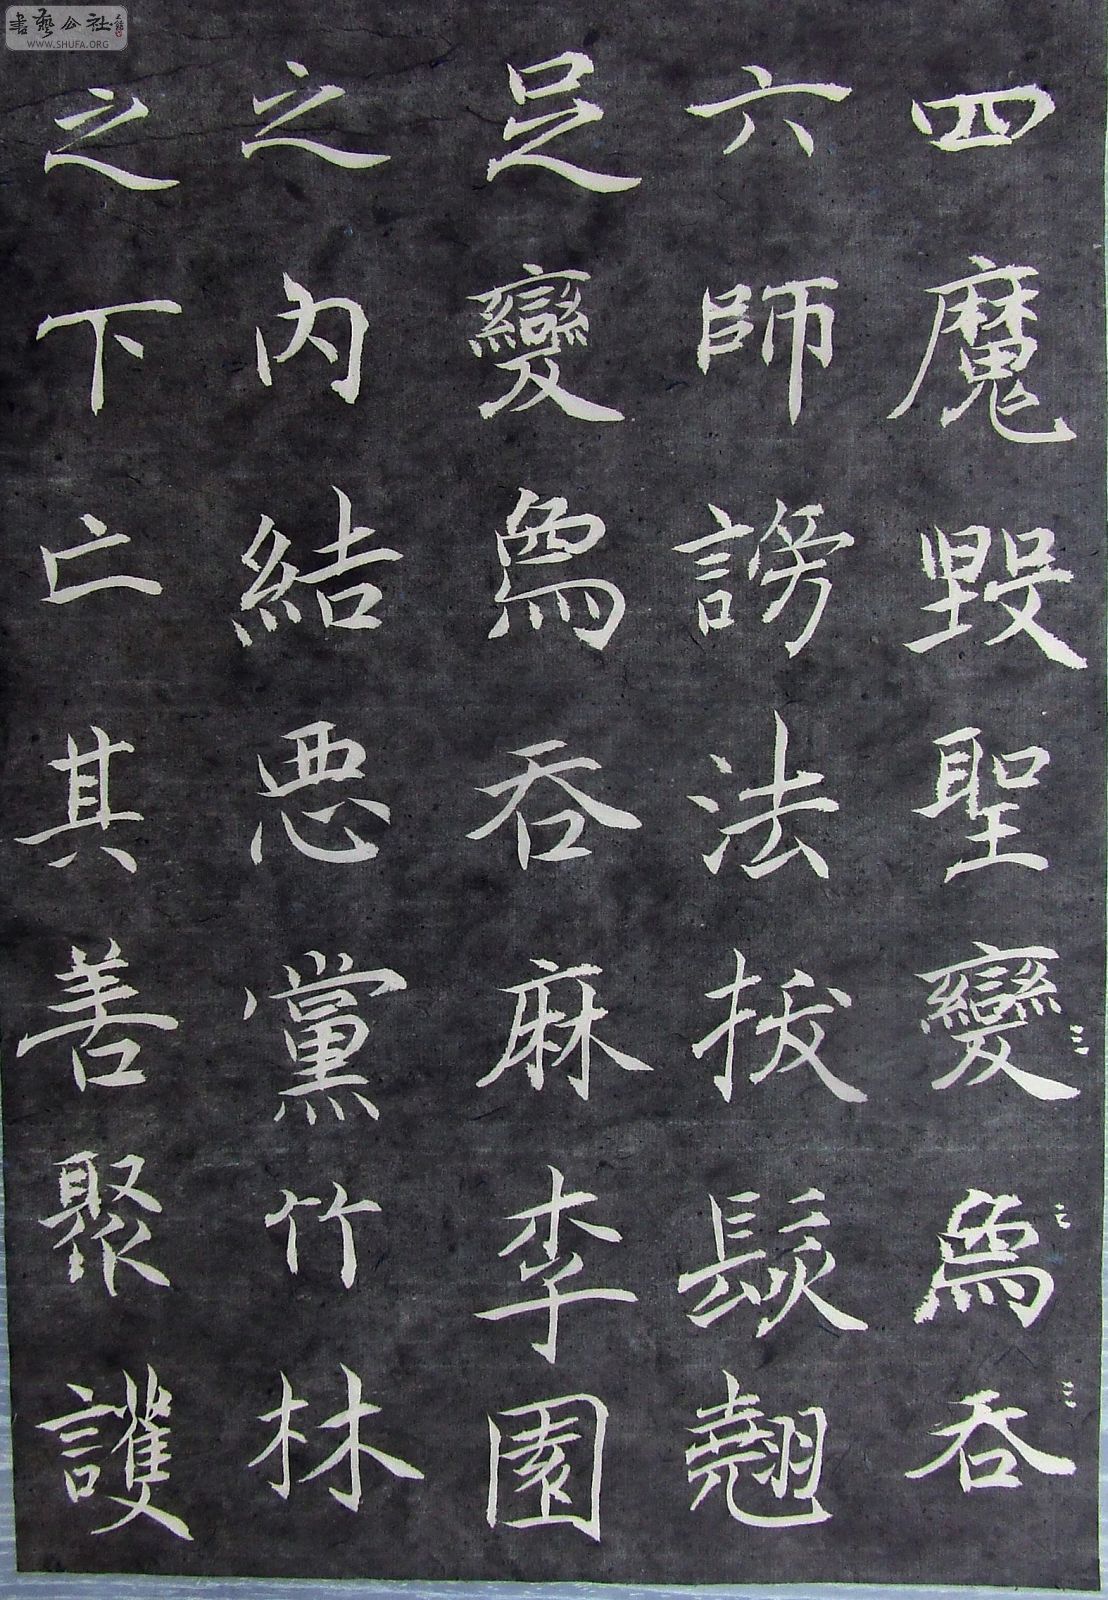 四魔毀聖變爲吞
六師謗法拔髮翹
足變爲吞麻李園
之内結惡黨竹林
之下亡其善聚護
書藝公社
WWW.SHUFA.ORG